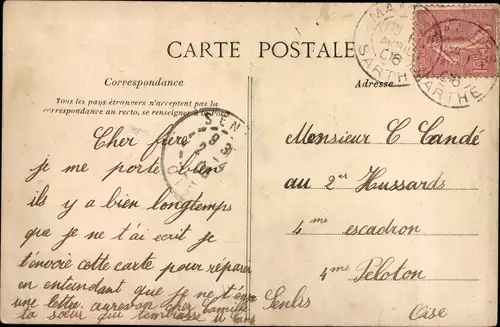 CARTE POSTALE
Correspondance
Tous les pays étrangers n'acceptent pas la
correspondance au recto, se renseigner à la Poste
Adresse
SARTHE
06
SARTHE
Cher frère
je me porte bien
ils y a bien longtemps
que je ne t'ai ecrit je
t'envoie cette carte pour réparer
en entendant que je ne t'
une lettre. aurevoir cher Camille
ta sœur qui
Monsieur C Candé
au 2es Hussards
4me escadron
4me Peloton
Senlis
Oise